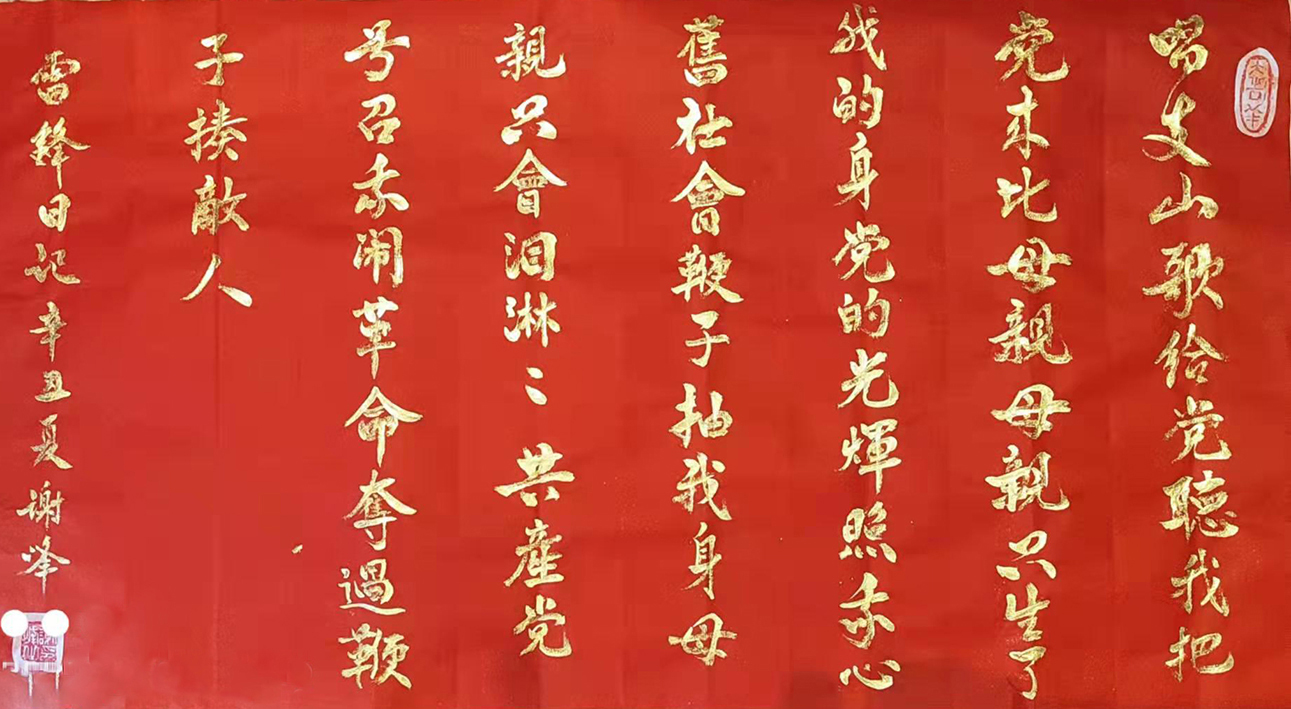 唱支山歌给党聽我把
党来比母親母親只生了
我的身党的光輝照我心
舊社會鞭子抽我身母
親只會泪淋〻共産党
号召我闹革命奪過鞭
子揍敵人
雷锋日记辛丑夏谢峰